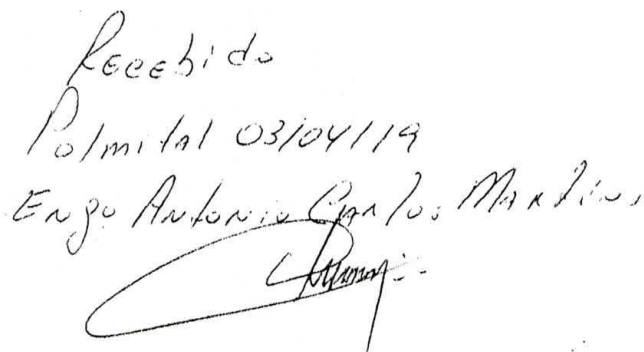 Recebido
Palmital 03/04/19
Engo Antonio Carlos Martins